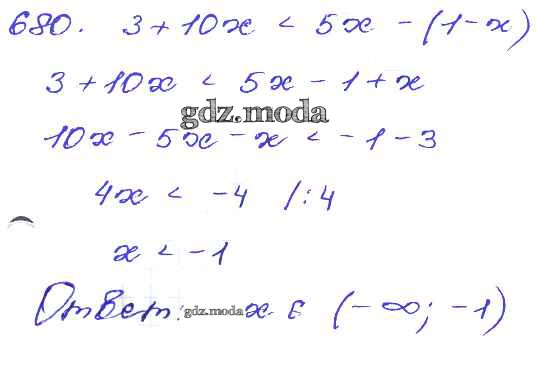 680. 3 + 10x < 5x - (1 - x)
3 + 10x < 5x - 1 + x
gdz.moda
10x - 5x - x < -1 - 3
4x < -4 /:4
x < -1
Ответ: gdz.moda x ∈ (-∞; -1)